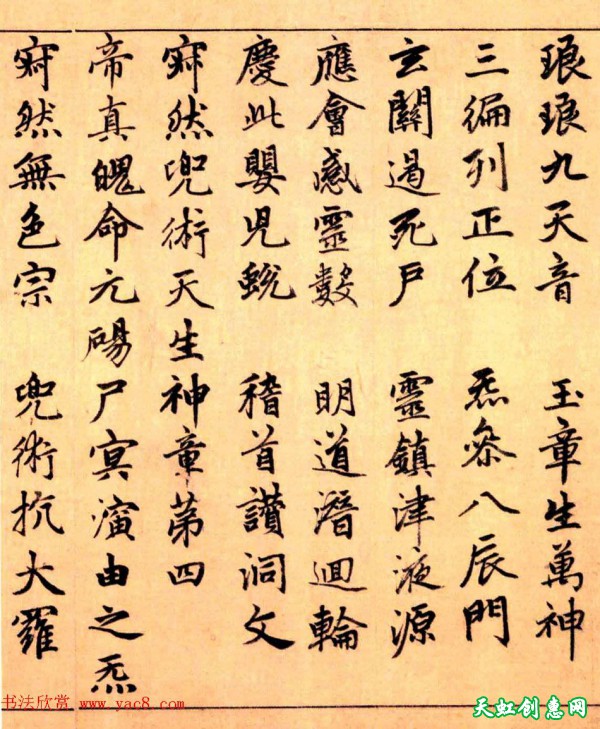 琅琅九天音 玉章生萬神
三編列正位 炁叅八辰門
玄關遏死戶 靈鎮津液源
應會感靈數 明道潛迴輪
慶此嬰兒蛻 稽首讚洞文
寂然兜術天生神章第四
帝真魄命元碭尸冥演由之炁
寂然無色宗 兜術抗大羅
书法欣赏 www.yac8.com
天虹创惠网